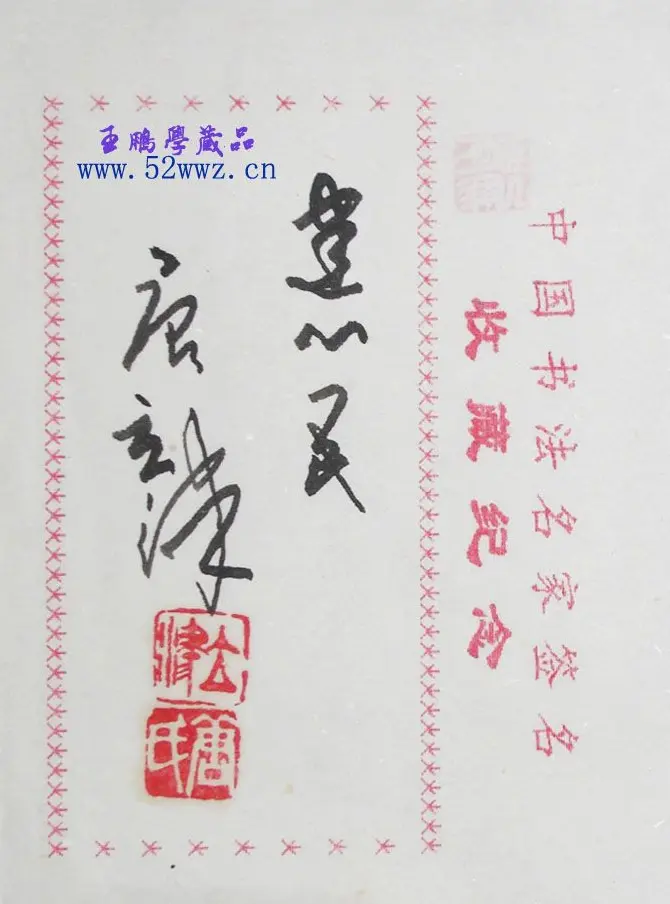 王鵬學藏品
www.52wwz.cn
中国书法名家签名
收藏纪念
唐立津
立津
唐氏